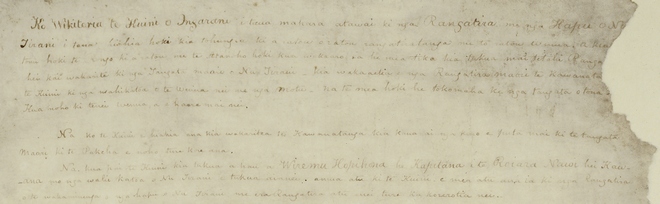 Ko Wikitoria te Kuini o Ingarani i tana mahara atawai ki nga Rangatira me nga Hapu o Nu
Tirani i tana hiahia hoki kia tohungia ki a ratou o ratou rangatiratanga me to ratou wenua, a kia
mau tonu hoki te Rongo ki a ratou me te Atanoho hoki kua wakaaro ia he mea tika kia tukua mai tetahi Rangatira
hei kai wakarite ki nga Tangata maori o Nu Tirani kia wakaaetia e nga Rangatira maori te Kawanatanga
o te Kuini ki nga wahikatoa o te wenua nei me nga motu na te mea hoki he tokomaha ke nga tangata o tona
Iwi Kua noho ki tenei wenua a e haere mai nei
Na ko te Kuini e hiahia ana kia wakaritea te Kawanatanga kia kaua ai nga kino e puta mai ki te tangata
Maori ki te Pakeha e noho ture kore ana
Na kua pai te Kuini kia tukua a hau a Wiremu Hopihona he Kapitana i te Roiara Nawi hei Kawana
mo nga wahi katoa o Nu Tirani e tukua aianei amua atu ki te Kuini e mea atu ana ia ki nga Rangatira
o te wakaminenga o nga hapu o Nu Tirani me era Rangatira atu enei ture ka korerotia nei